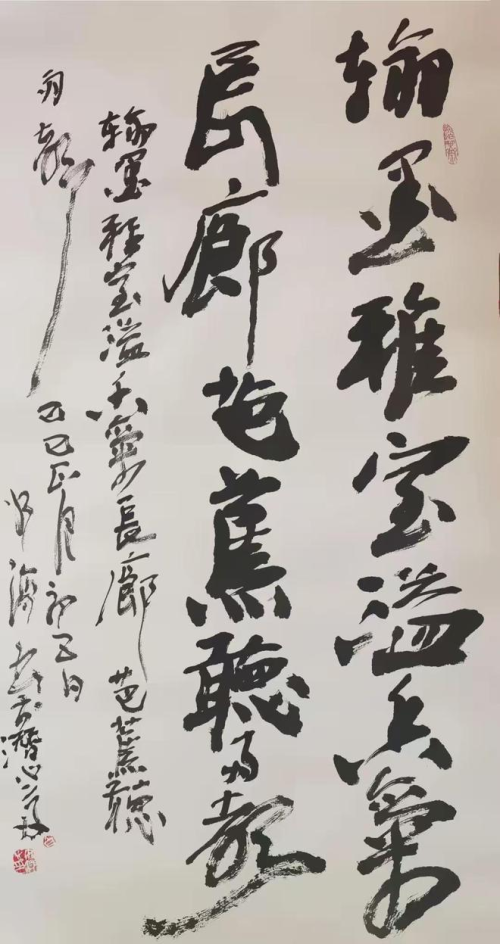 翰墨雅室溢香氣
長廊芭蕉聽雨聲
翰墨雅室溢香氣長廊芭蕉聽
雨聲 乙巳正月初五日
海書於潛心齋